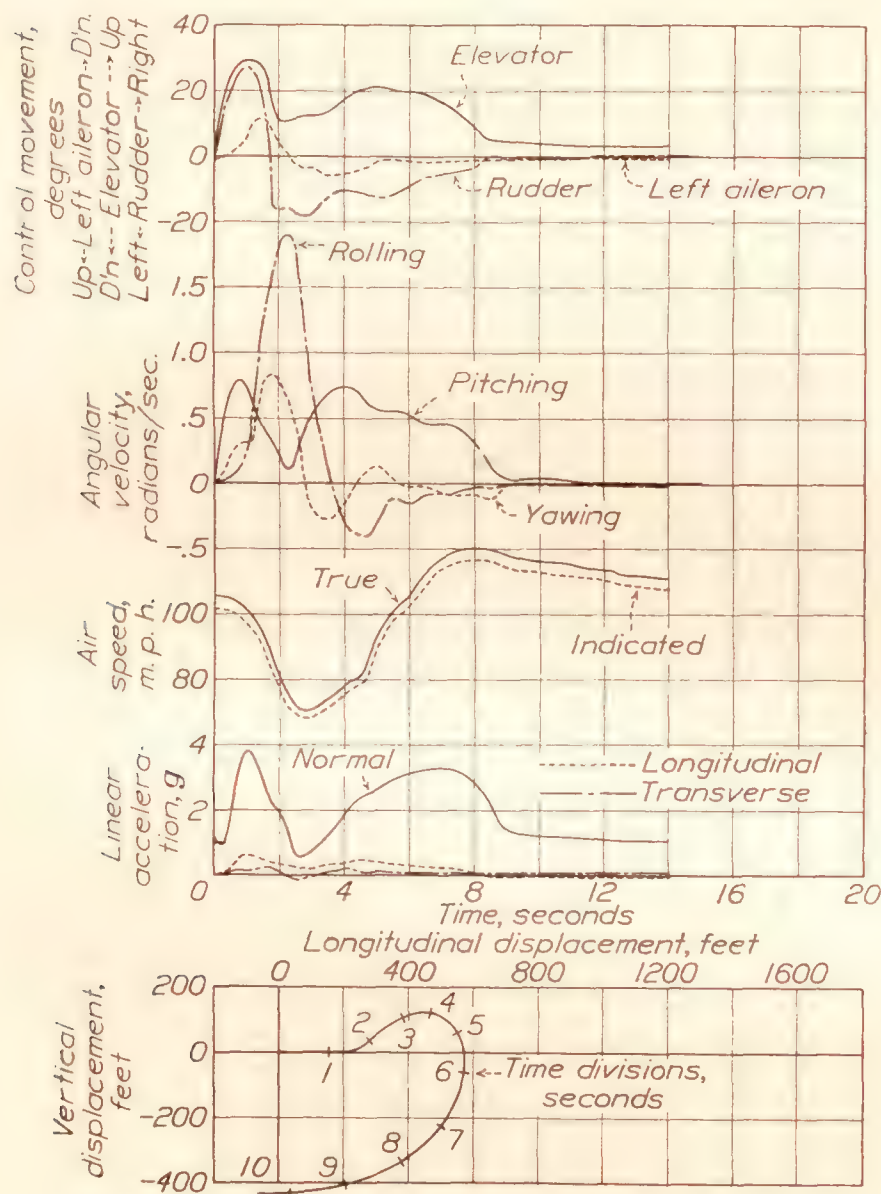 Contr ol movement,
degrees
Up←Left aileron→D'n.
D'n←--Elevator--→Up
Left←-Rudder-→Right
40
20
0
-20
Elevator
Rudder
Left aileron
Angular
velocity,
radians/sec.
1.5
1.0
.5
0
-.5
Rolling
Pitching
Yawing
Air
speed,
m. p. h.
100
80
True
Indicated
Linear
accelera-
tion, g
4
2
0
Normal
Longitudinal
Transverse
4 8 12 16 20
Time, seconds
Longitudinal displacement, feet
0 400 800 1200 1600
Vertical
displacement,
feet
200
0
-200
-400
1
2
3
4
5
6
7
8
9
10
Time divisions,
seconds